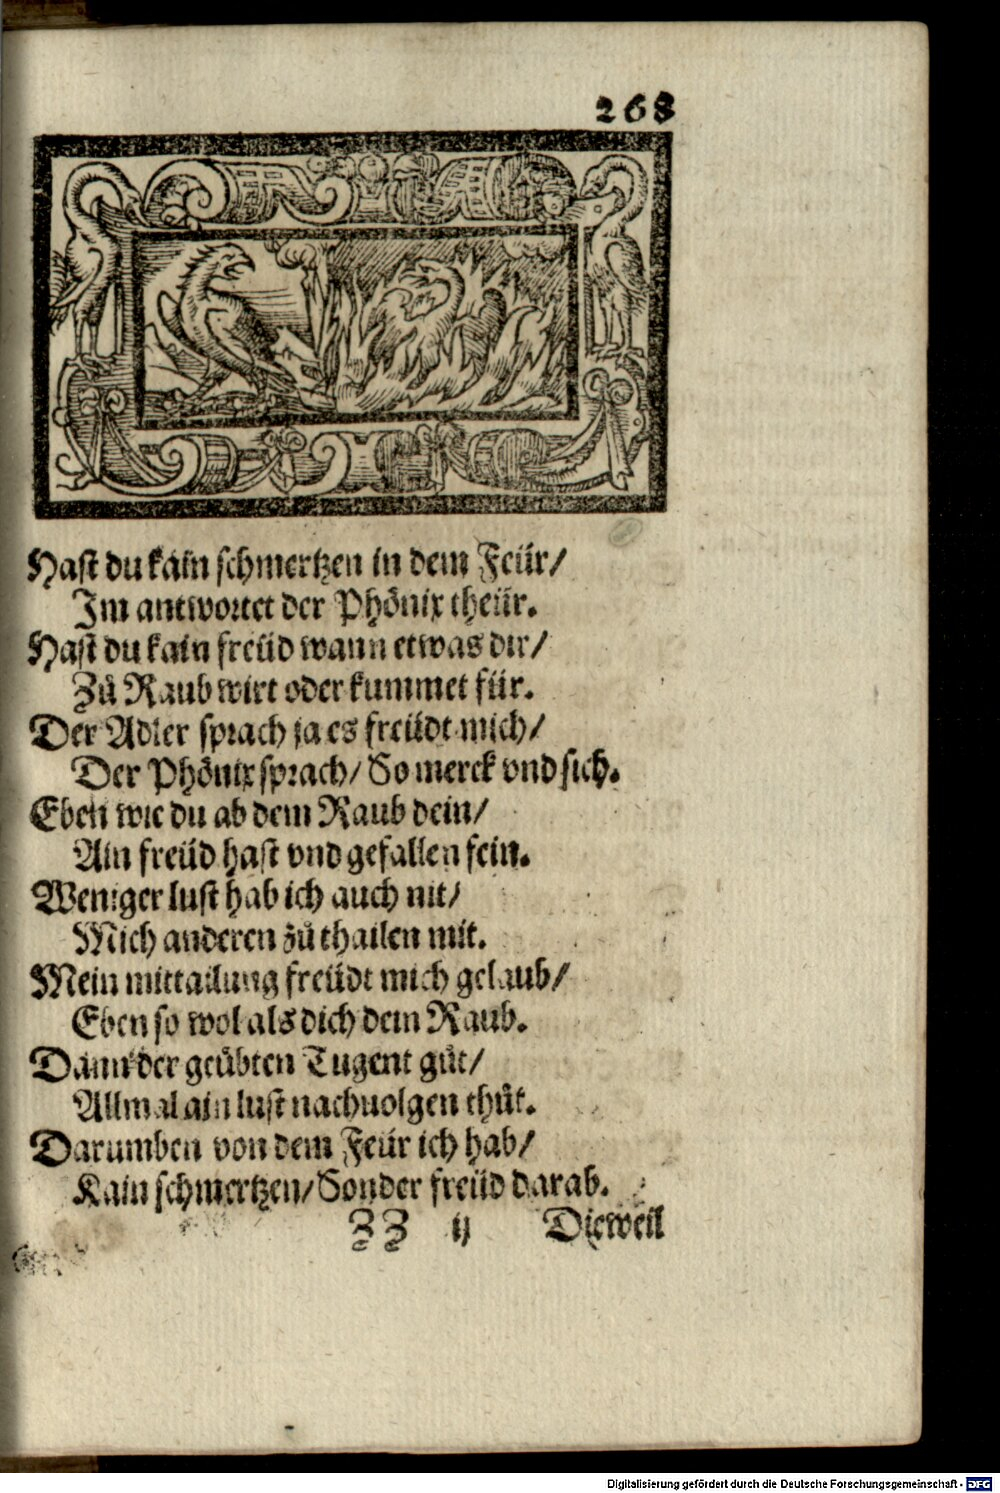 268
Hast du kain schmertzen in dem Feür/
Im antwortet der Phönix theür.
Hast du kain freüd wann etwas dir/
Zů Raub wirt oder kummet für.
Der Adler sprach ja es freüdt mich/
Der Phönix sprach/ So merck vnd sich.
Eben wie du ab dem Raub dein/
Ain freüd hast vnd gefallen fein.
Weniger lust hab ich auch nit/
Mich anderen zů thailen mit.
Mein mittailung freüdt mich gelaub/
Eben so wol als dich dein Raub.
Dann der geübten Tugent gůt/
Allmal ain lust nachuolgen thůt.
Darumben von dem Feür ich hab/
Kain schmertzen/ Sonder freüd darab.
ZZ ij Dieweil
Digitalisierung gefördert durch die Deutsche Forschungsgemeinschaft - DFG